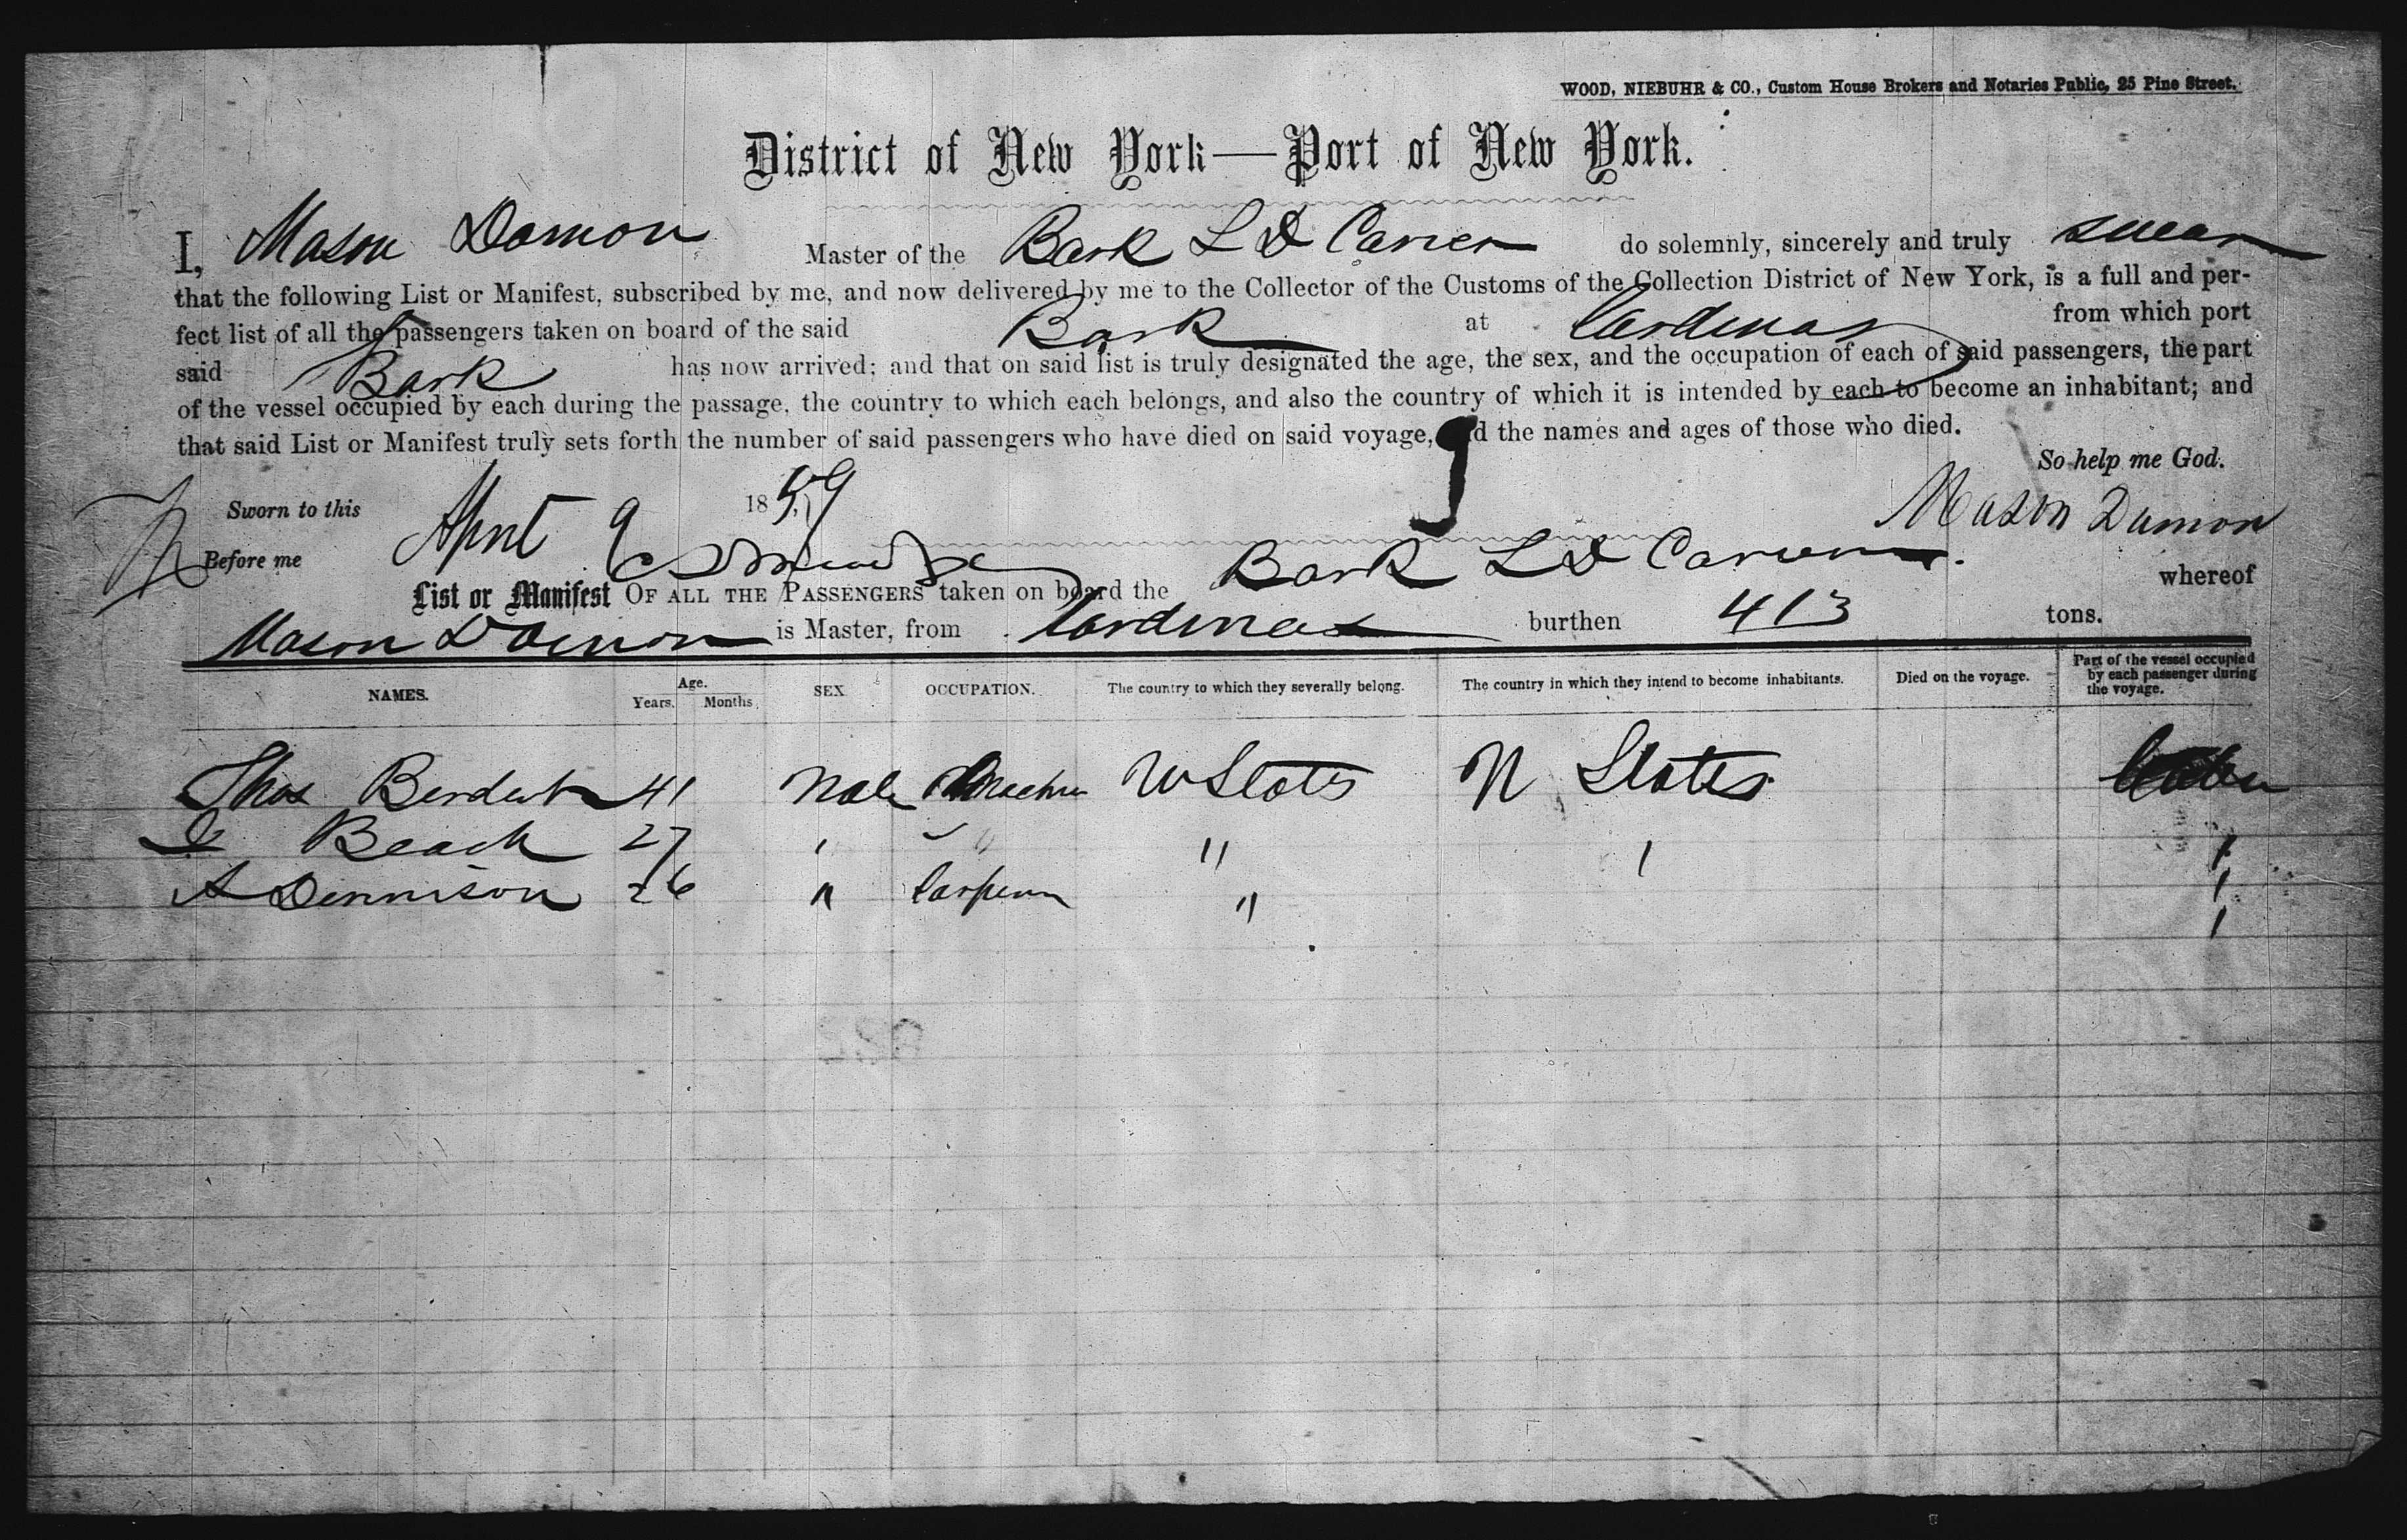 WOOD, NIEBUHR & CO., Custom House Brokers and Notaries Public, 25 Pine Street.
District of New York—Port of New York.
I, Mason Damon Master of the Bark L D Carver do solemnly, sincerely and truly swear
that the following List or Manifest, subscribed by me, and now delivered by me to the Collector of the Customs of the Collection District of New York, is a full and per-
fect list of all the passengers taken on board of the said Bark at Cardenas from which port
said Bark has now arrived; and that on said list is truly designated the age, the sex, and the occupation of each of said passengers, the part
of the vessel occupied by each during the passage, the country to which each belongs, and also the country of which it is intended by each to become an inhabitant; and
that said List or Manifest truly sets forth the number of said passengers who have died on said voyage, d the names and ages of those who died.
So help me God.
Sworn to this April 9 1859 Mason Damon
Before me
List or Manifest OF ALL THE PASSENGERS taken on board the Bark L D Carver whereof
Mason Damon is Master, from Cardenas burthen 413 tons.
NAMES. Age. Years. Months. SEX OCCUPATION. The country to which they severally belong. The country in which they intend to become inhabitants. Died on the voyage. Part of the vessel occupied by each passenger during the voyage.
Thos 41 Male States States
Beach 27 ' " '
A Dennison 26 " "